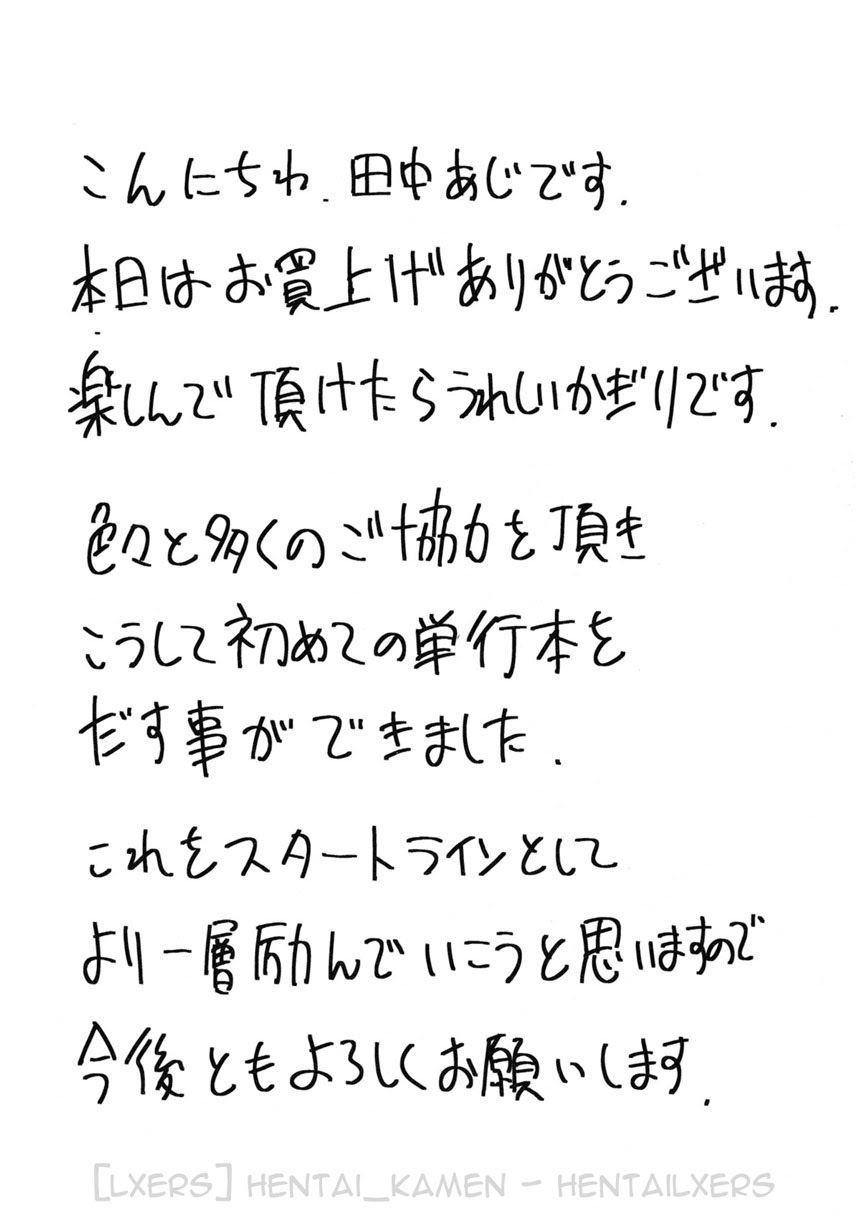 こんにちわ.田中あじです.
本日はお買上げありがとうございます.
楽しんで頂けたらうれしいかぎりです.
色々と多くのご協力を頂き
こうして初めての単行本を
だす事ができました.
これをスタートラインとして
より一層励んでいこうと思いますので
今後ともよろしくお願いします.
[LXERS] HENTAI_KAMEN - HENTAILXERS